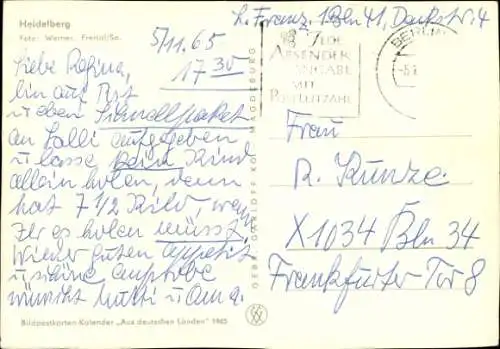 Heidelberg
Foto: Werner, Freital/Sa.
L. Franz, 1 Bln 41,
5/11.65
17 30
Liebe Regina,
bin auf Post
u eben Schnellpaket
an Lalli aufgegeben
u lasse kein Kind
allein holen, denn
hat 7 1/2 Kilo,
Ihr es holen müsst.
Wieder guten Appetit
u schöne
wünscht Mutti u Oma.
BERLIN
JEDE
ABSENDER
ANGABE
MIT
POSTLEITZAHL
Frau
R. Kunze
X1034 Bln 34
Frankfurter Tor 8
GEBR. GARLOFF KG. MAGDEBURG
Bildpostkarten-Kalender „Aus deutschen Landen" 1965